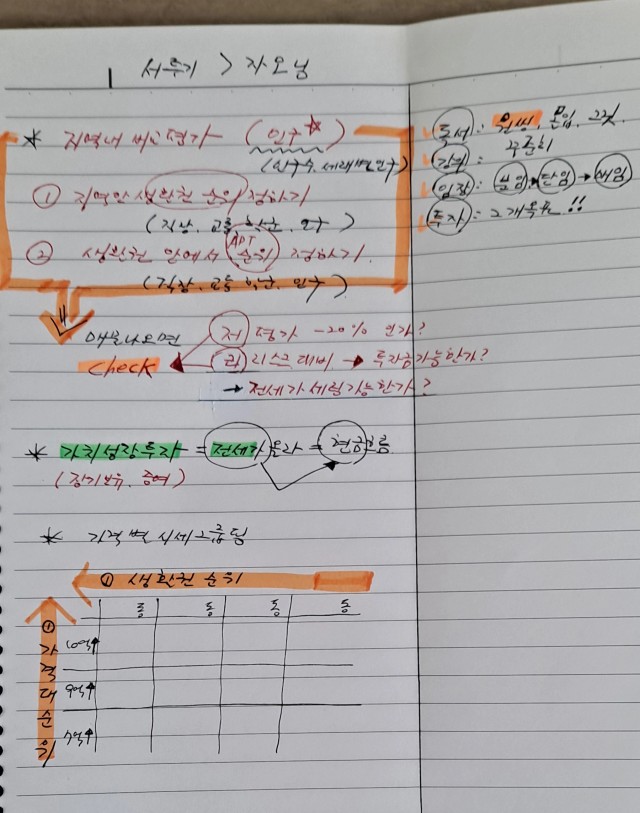 서투기 > 자모님
* 지역내 비교평가 (인구☆)
(인구수, 세대별인구)
① 지역안 생활권 순위 정하기
(직장, 교통, 학군, 인구)
② 생활권 안에서 APT 순위 정하기
(직장, 교통, 학군, 인구)
매물나오면
check
저평가 -20% 인가?
리스크 대비 → 투자금가능한가?
→ 전세가 세팅가능한가?
* 가치성장투자 = 전세가 올라 = 현금흐름
(장기보유, 증여)
* 가격별 시세그룹핑
① 생활권 순위
동 동 동 동
① 가격대순위
10억↑
9억↑
7억↑
독서: 원씽, 몰입, 그릿
강의: 꾸준히
임장: 분임 → 단임 → 매임
투자 = 2개목표!!